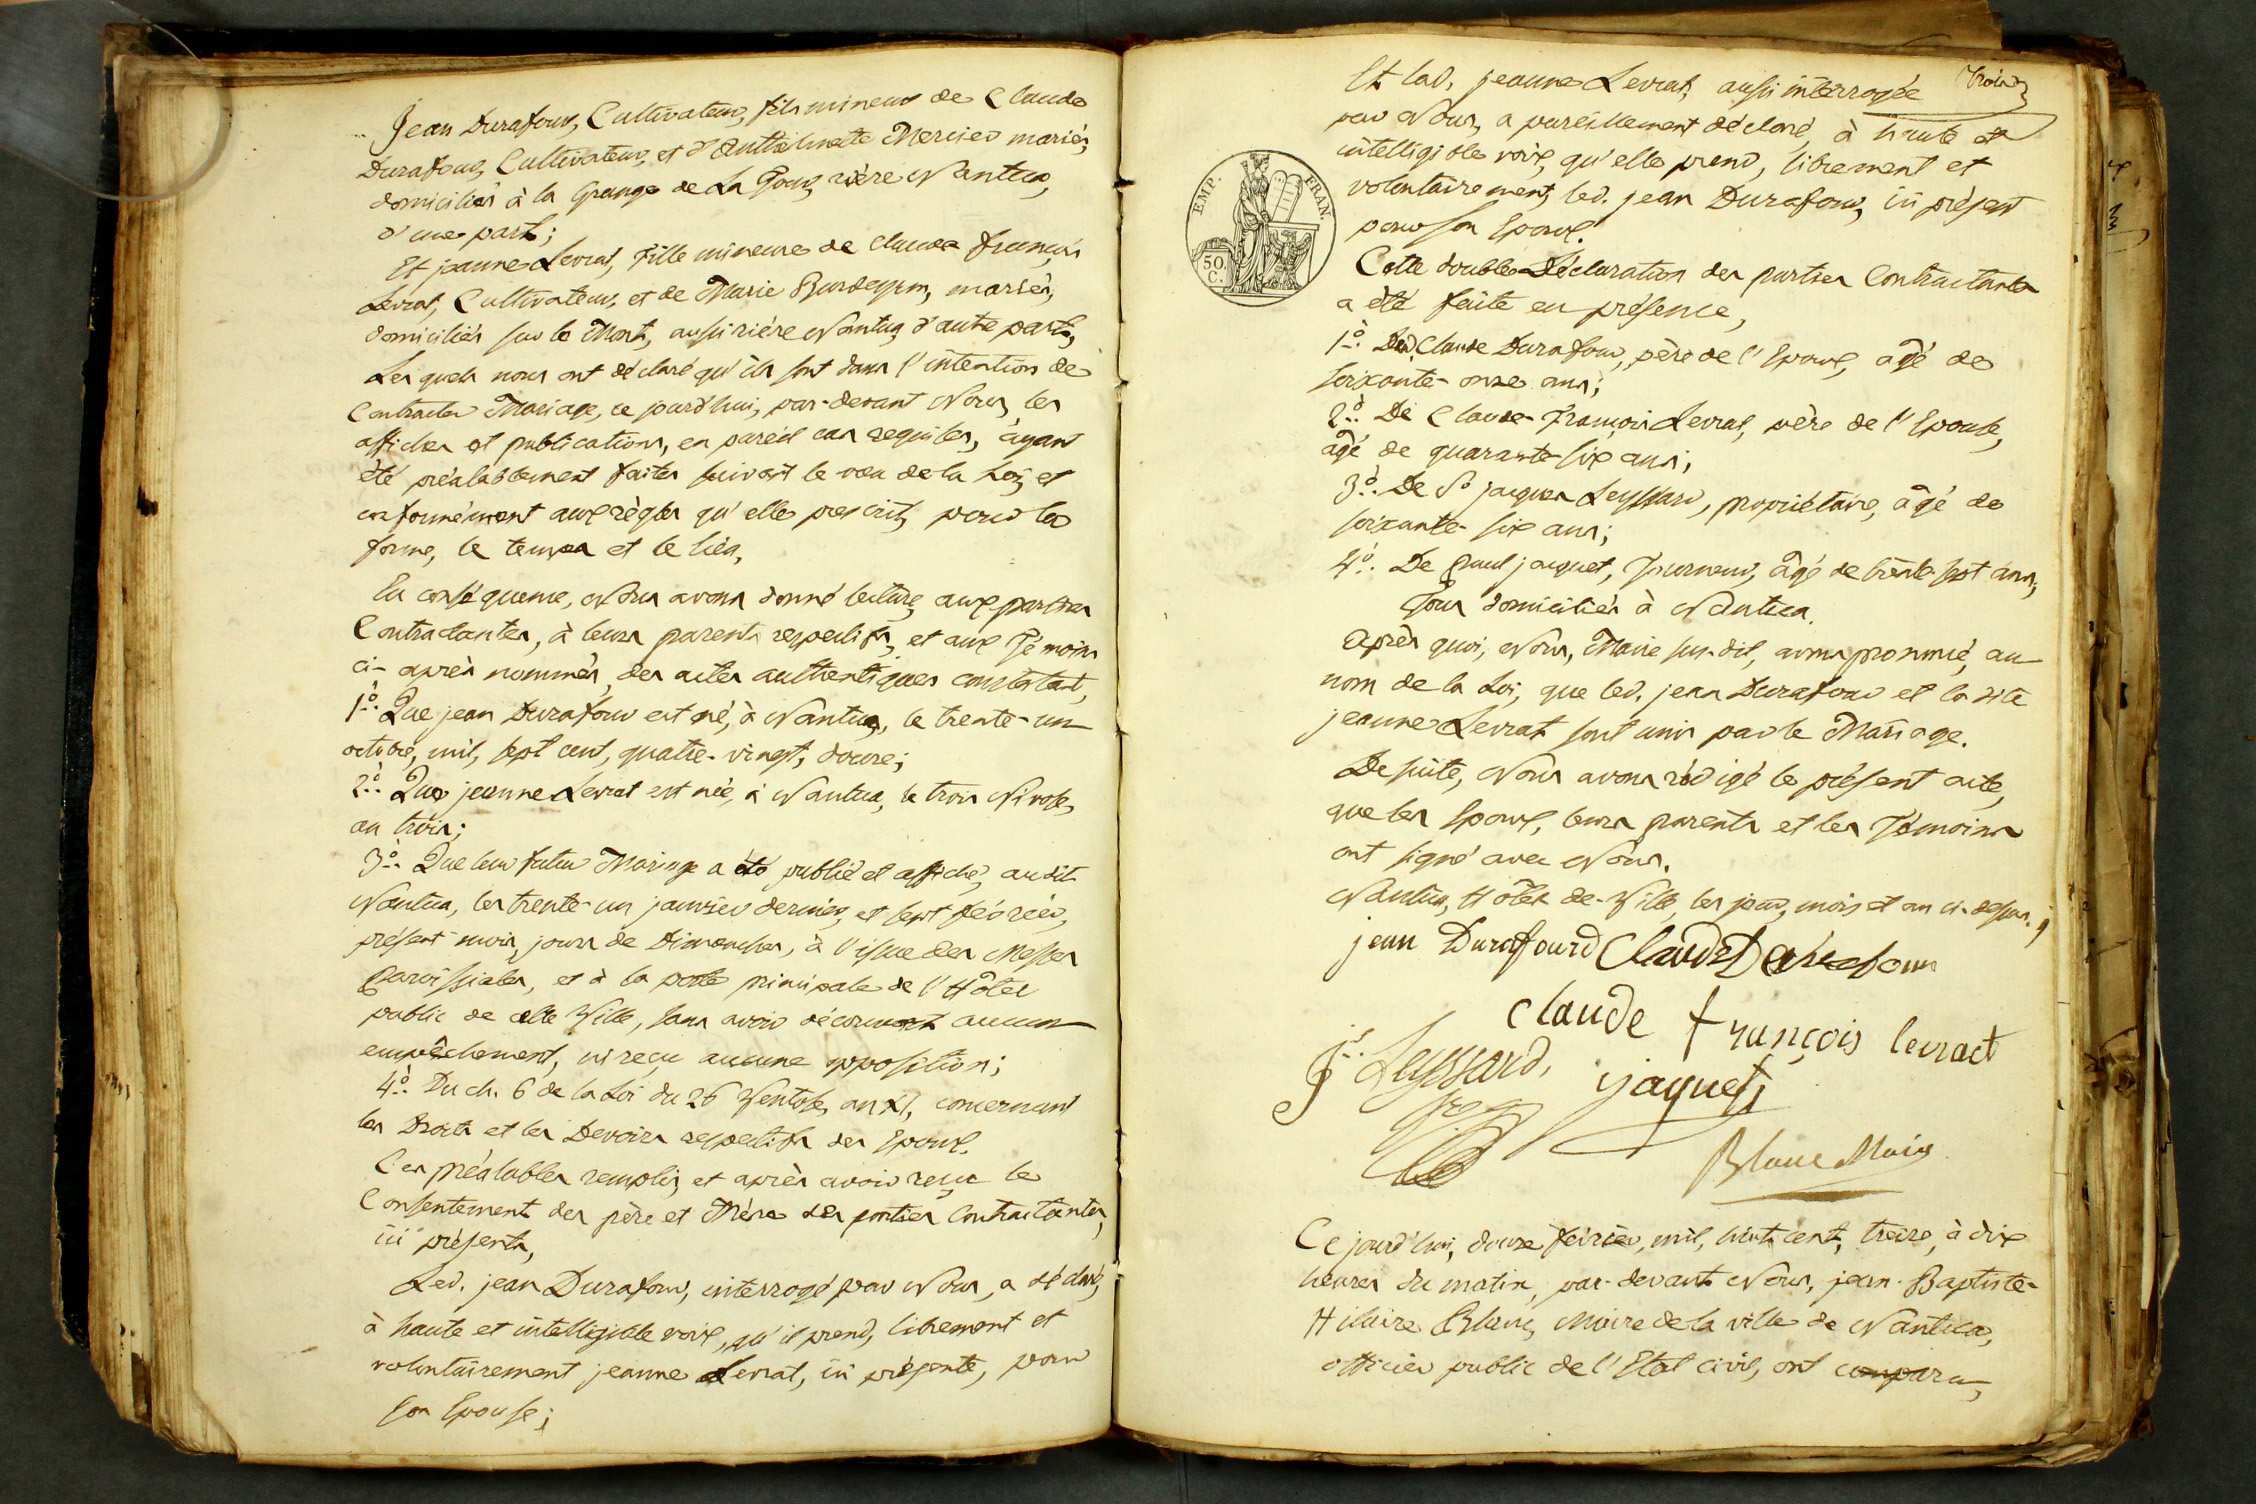 Jean Durafour, Cultivateur, fils mineur de Claude
Durafour, Cultivateur, et d'Anthelmette Mercier mariés,
domiciliés à la Grange de La Gour, rière Nantua,
d'une part;
Et jeanne Levrat, fille mineure de claude françois
Levrat, Cultivateur, et de Marie, mariés,
domiciliés sur le Mont, aussi rière Nantua, d'autre part,
Les quels nous ont déclaré qu'ils sont dans l'intention de
Contracter Mariage, ce jourd'hui, par-devant Nous, les
affiches et publications, en pareil cas requises, ayant
été préalablement faites suivant le vœu de la Loi, et
conformément aux règles qu'elle prescrit, pour la
forme, le temps et le lieu,
En conséquence, Nous avons donné lecture, aux parties
Contractantes, à leurs parents respectifs, et aux Témoins
ci-après nommés, des actes authentiques constatant,
1º. Que jean Durafour est né, à Nantua, le trente-un
octobre, mil, sept cent, quatre-vingt, douze;
2º. Que jeanne Levrat est née, à Nantua, le trois Nivose,
an trois;
3º. Que leur futur Mariage a été publié et affiché, audit
Nantua, les trente-un janvier dernier, et sept février,
présent mois, jours de Dimanches, à l'issue des Messes
paroissiales, et à la porte principale de l'Hôtel
public de cette Ville, sans avoir découvert aucun
empêchement, ni reçu aucune opposition;
4º. Du ch. 6 de la Loi du 26 Ventose, an XI, concernant
les Droits et les Devoirs respectifs des Epoux.
Ces préalables remplis, et après avoir reçu le
Consentement des père et Mère des parties Contractantes,
ici présents,
Led. jean Durafour, interrogé par Nous, a déclaré,
à haute et intelligible voix, qu'il prend, librement et
volontairement jeanne Levrat, ici présente, pour
son Epouse;
trois
Et lad. jeanne Levrat, aussi interrogée
par Nous, a pareillement déclaré, à haute et
intelligible voix, qu'elle prend, librement et
volontairement, led. jean Durafour, ici présent
pour son Epoux.
EMP. FRAN.
50 C.
Cette double Déclaration des parties Contractantes
a été faite en présence,
1º. Dud. Claude Durafour, père de l'Epoux, âgé de
soixante-onze ans;
2º. De Claude-françois Levrat, père de l'Epouse,
âgé de quarante-six ans;
3º. De Sr jacques Leyssard, propriétaire, âgé de
soixante-six ans;
4º. De paul jacquet, Tourneur, âgé de trente-sept ans,
Tous domiciliés à Nantua.
Après quoi, Nous, Maire sus-dit, avons prononcé, au
nom de la Loi, que led. jean Durafour et la dite
jeanne Levrat sont unis par le Mariage.
De suite, Nous avons rédigé le présent acte,
que les Epoux, leurs parents et les Témoins
ont signé avec Nous.
Nantua, Hôtel-de-Ville, les jour, mois et an ci-dessus.
jean Durafourd Claude Durafour
claude françois levract
Jes Leyssard, jaquet
Blanc Maire
Ce jourd'hui, douze février, mil, huit cent, treize, à dix
heures du matin, par-devant Nous, jean-Baptiste-
Hilaire Blanc, Maire de la ville de Nantua,
officier public de l'Etat civil, ont comparu,